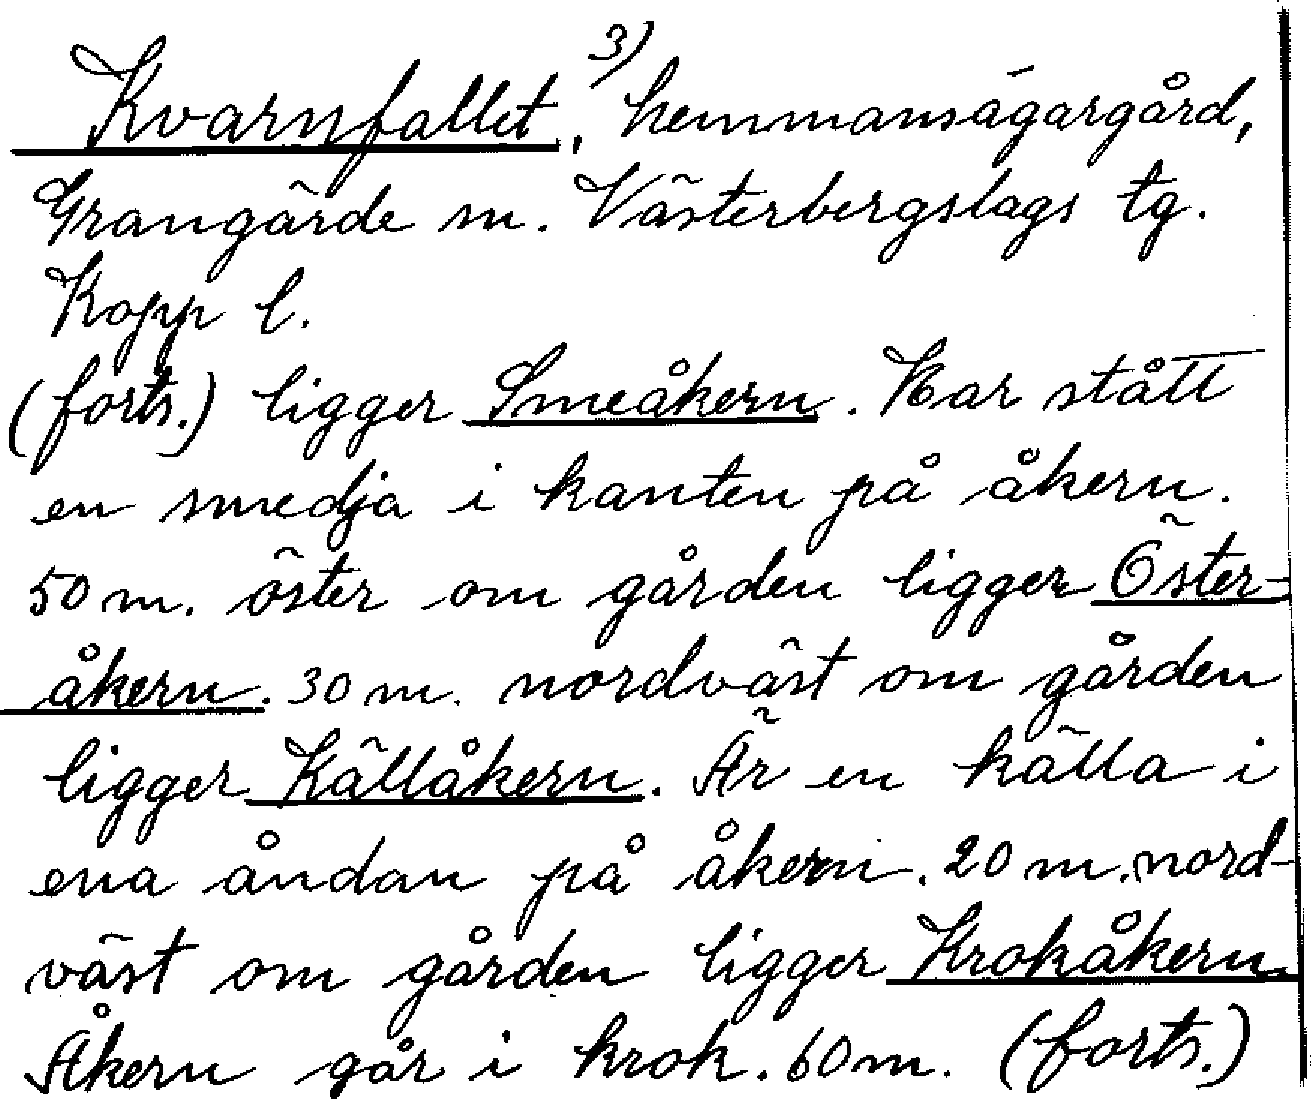 Kvarnfallet, 3) hemmansägargård,
Grangärde sn. Västerbergslags tg.
Kopp l.
(forts.) ligger Smeåkern. Har stått
en smedja i kanten på åkern.
50 m. öster om gården ligger Öster-
åkern. 30 m. nordväst om gården
ligger Källåkern. Är en källa i
ena åndan på åkern. 20 m. nord-
väst om gården ligger Krokåkern.
Åkern går i krok. 60 m. (forts.)